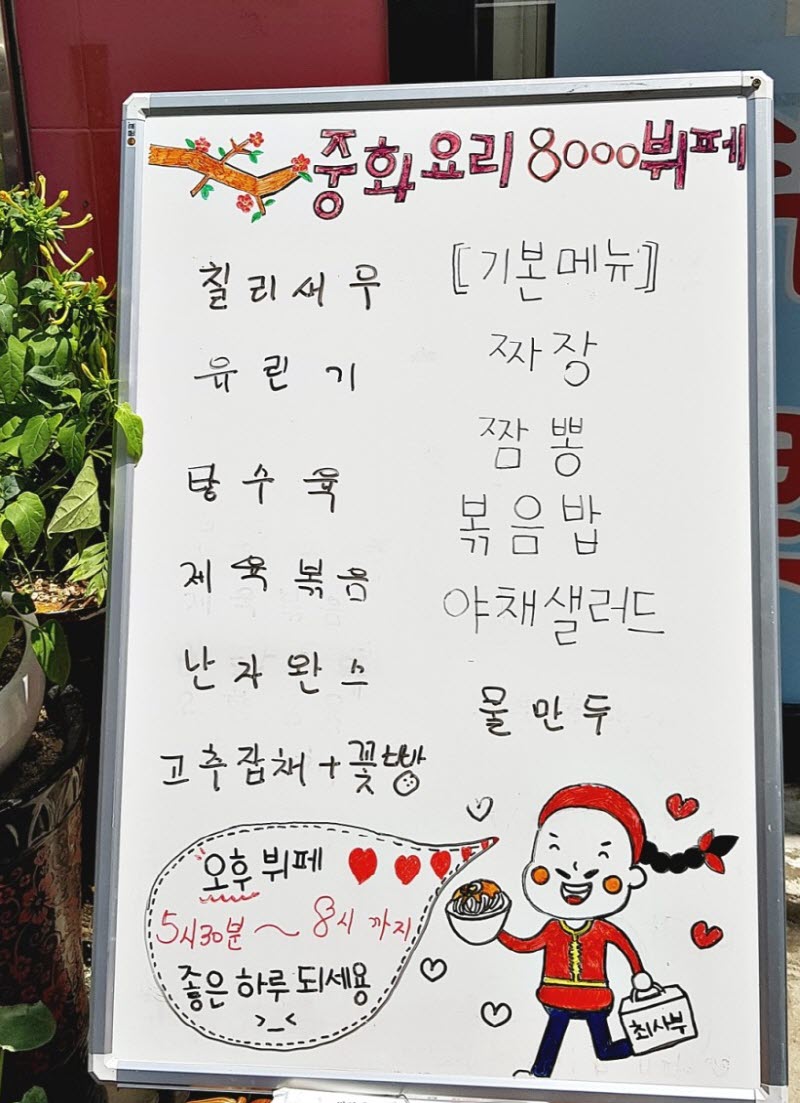 중화요리 8000뷔페
칠리새우
유린기
탕수육
제육볶음
난자완스
고추잡채+꽃빵
[기본메뉴]
짜장
짬뽕
볶음밥
야채샐러드
물만두
오후 뷔페
5시30분 ~ 8시 까지
좋은 하루 되세용
>_<
최사부